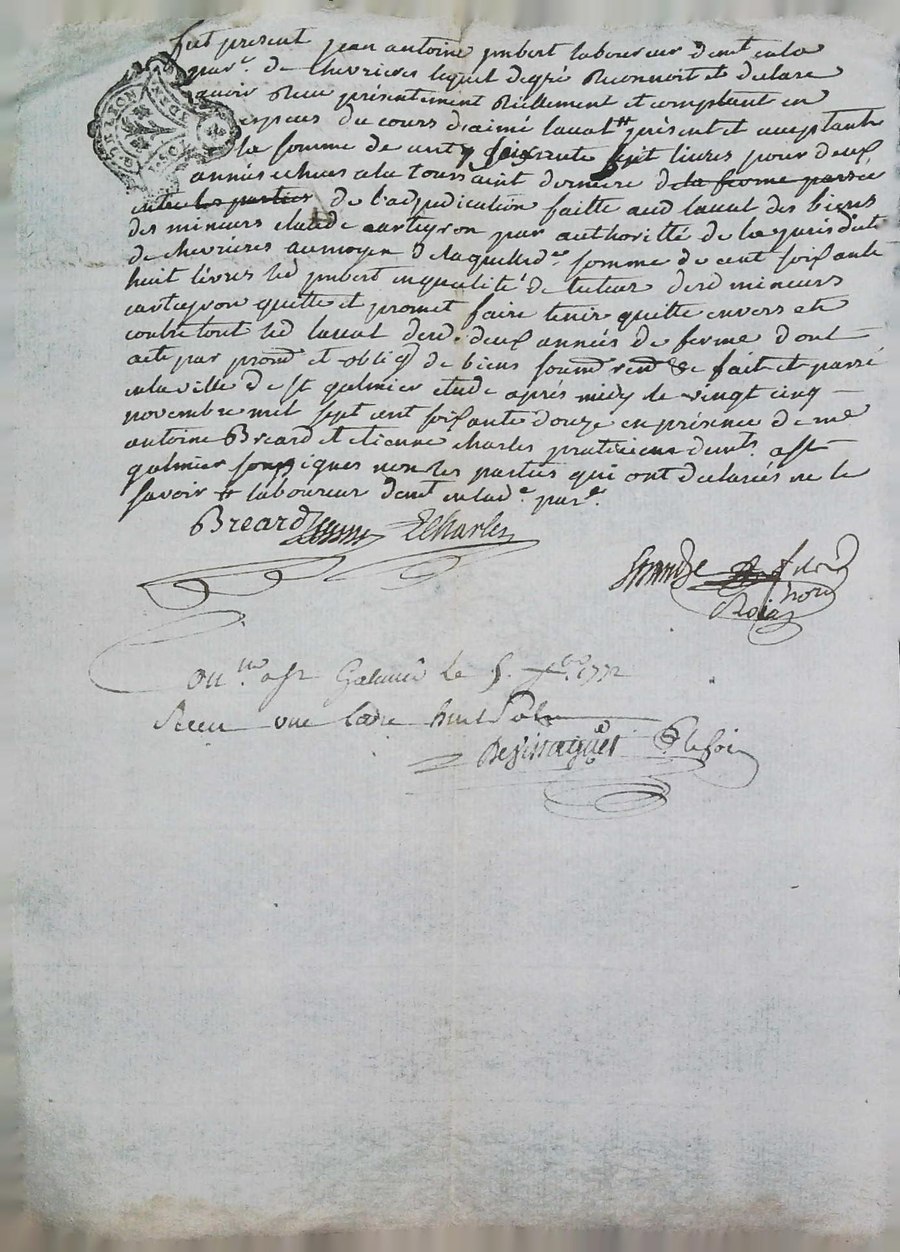 G. D. LYON
fut présent jean antoine jmbert laboureur demt en la
parr. de Chevrieres lequel de gré Reconnoit et declare
avoir Receu présentement Réellement et comptant en
especes du cours d'aimé laval # présent et acceptante
la somme de cent soixante huit livres pour deux
années echues a la toussaint derniere de la ferme passée
entre les parties de l'adjudication faitte aud laval des biens
des mineurs claude carteyron par authorité de la jurisdicti
de chevrieres au moyen de laquelle de. somme de cent soixante
huit livres led jmbert en qualité de tuteur desd mineurs
carteyron quitte et promet faire tenir quitte envers et
contre tout led laval desd. deux années de ferme dont
acte par promd et obligd de biens soumd rend &c fait et passé
en la ville de st galmier etude après midy le vingt cinq
novembre mil sept cent soixante douze en présence de me
antoine Breard et etienne charles praticiens demts. a st
galmier soussignes non les parties qui ont declarées ne le
savoir # laboureur demt en lad. parr.
Breard ECharles
Con. a st Galmier le 5. 1772
Receu une livre huit sols